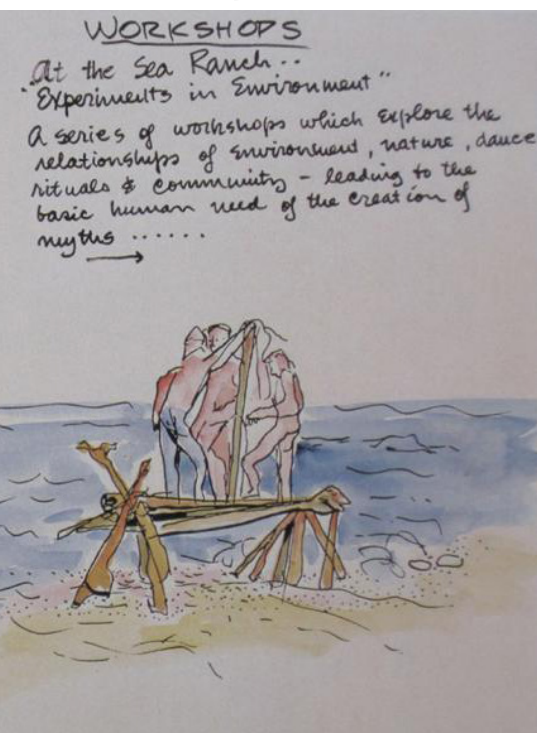 WORKSHOPS
At the Sea Ranch..
"Experiments in Environment"
A series of workshops which explore the
relationships of environment, nature, dance
rituals & community - leading to the
basic human need of the creation of
myths ......